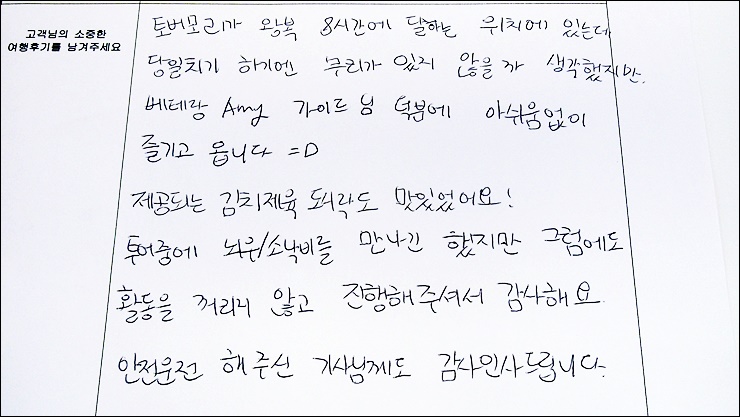 고객님의 소중한
여행후기를 남겨주세요
토버모리가 왕복 8시간에 달하는 위치에 있는데
당일치기 하기엔 무리가 있지 않을까 생각했지만,
베테랑 Amy 가이드님 덕분에 아쉬움없이
즐기고 옵니다 =D
제공되는 김치제육 도시락도 맛있었어요!
투어중에 뇌우/소낙비를 만나긴 했지만 그럼에도
활동을 꺼리지 않고 진행해주셔서 감사해요.
안전운전 해주신 기사님께도 감사인사드립니다.